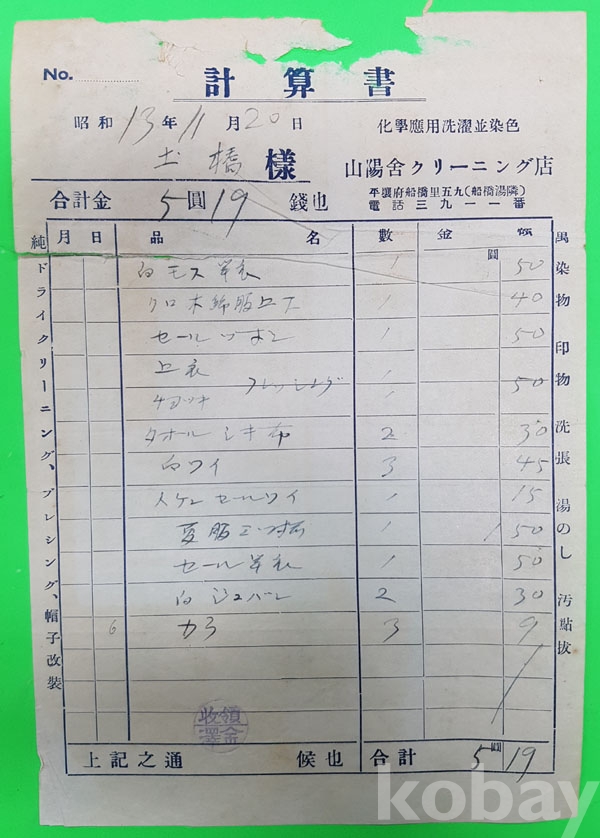 No.
計算書
昭和13年11月20日
化學應用洗濯並染色
土橋様
山陽舍クリーニング店
平壤府船橋里五九(船橋湯隣)
電話三九一一番
合計金5圓19錢也
月 日 品名 數 金額
圓
白モス單衣 1 50
クロ木綿服上下 1 40
セールヅボン 1 50
上衣 1
チヨツキ プレッシング 1 50
タホールシキ布 2 30
白ワイ 3 45
セールワイ 1 15
夏服三ツ揃 1 1 50
セール單衣 1 50
白 2 30
6 カラ 3 9
領收
上記之通候也 合計5圓19
純ドライクリーニング、プレシング、帽子改裝
萬染物印物洗張湯のし汚點拔
kobay